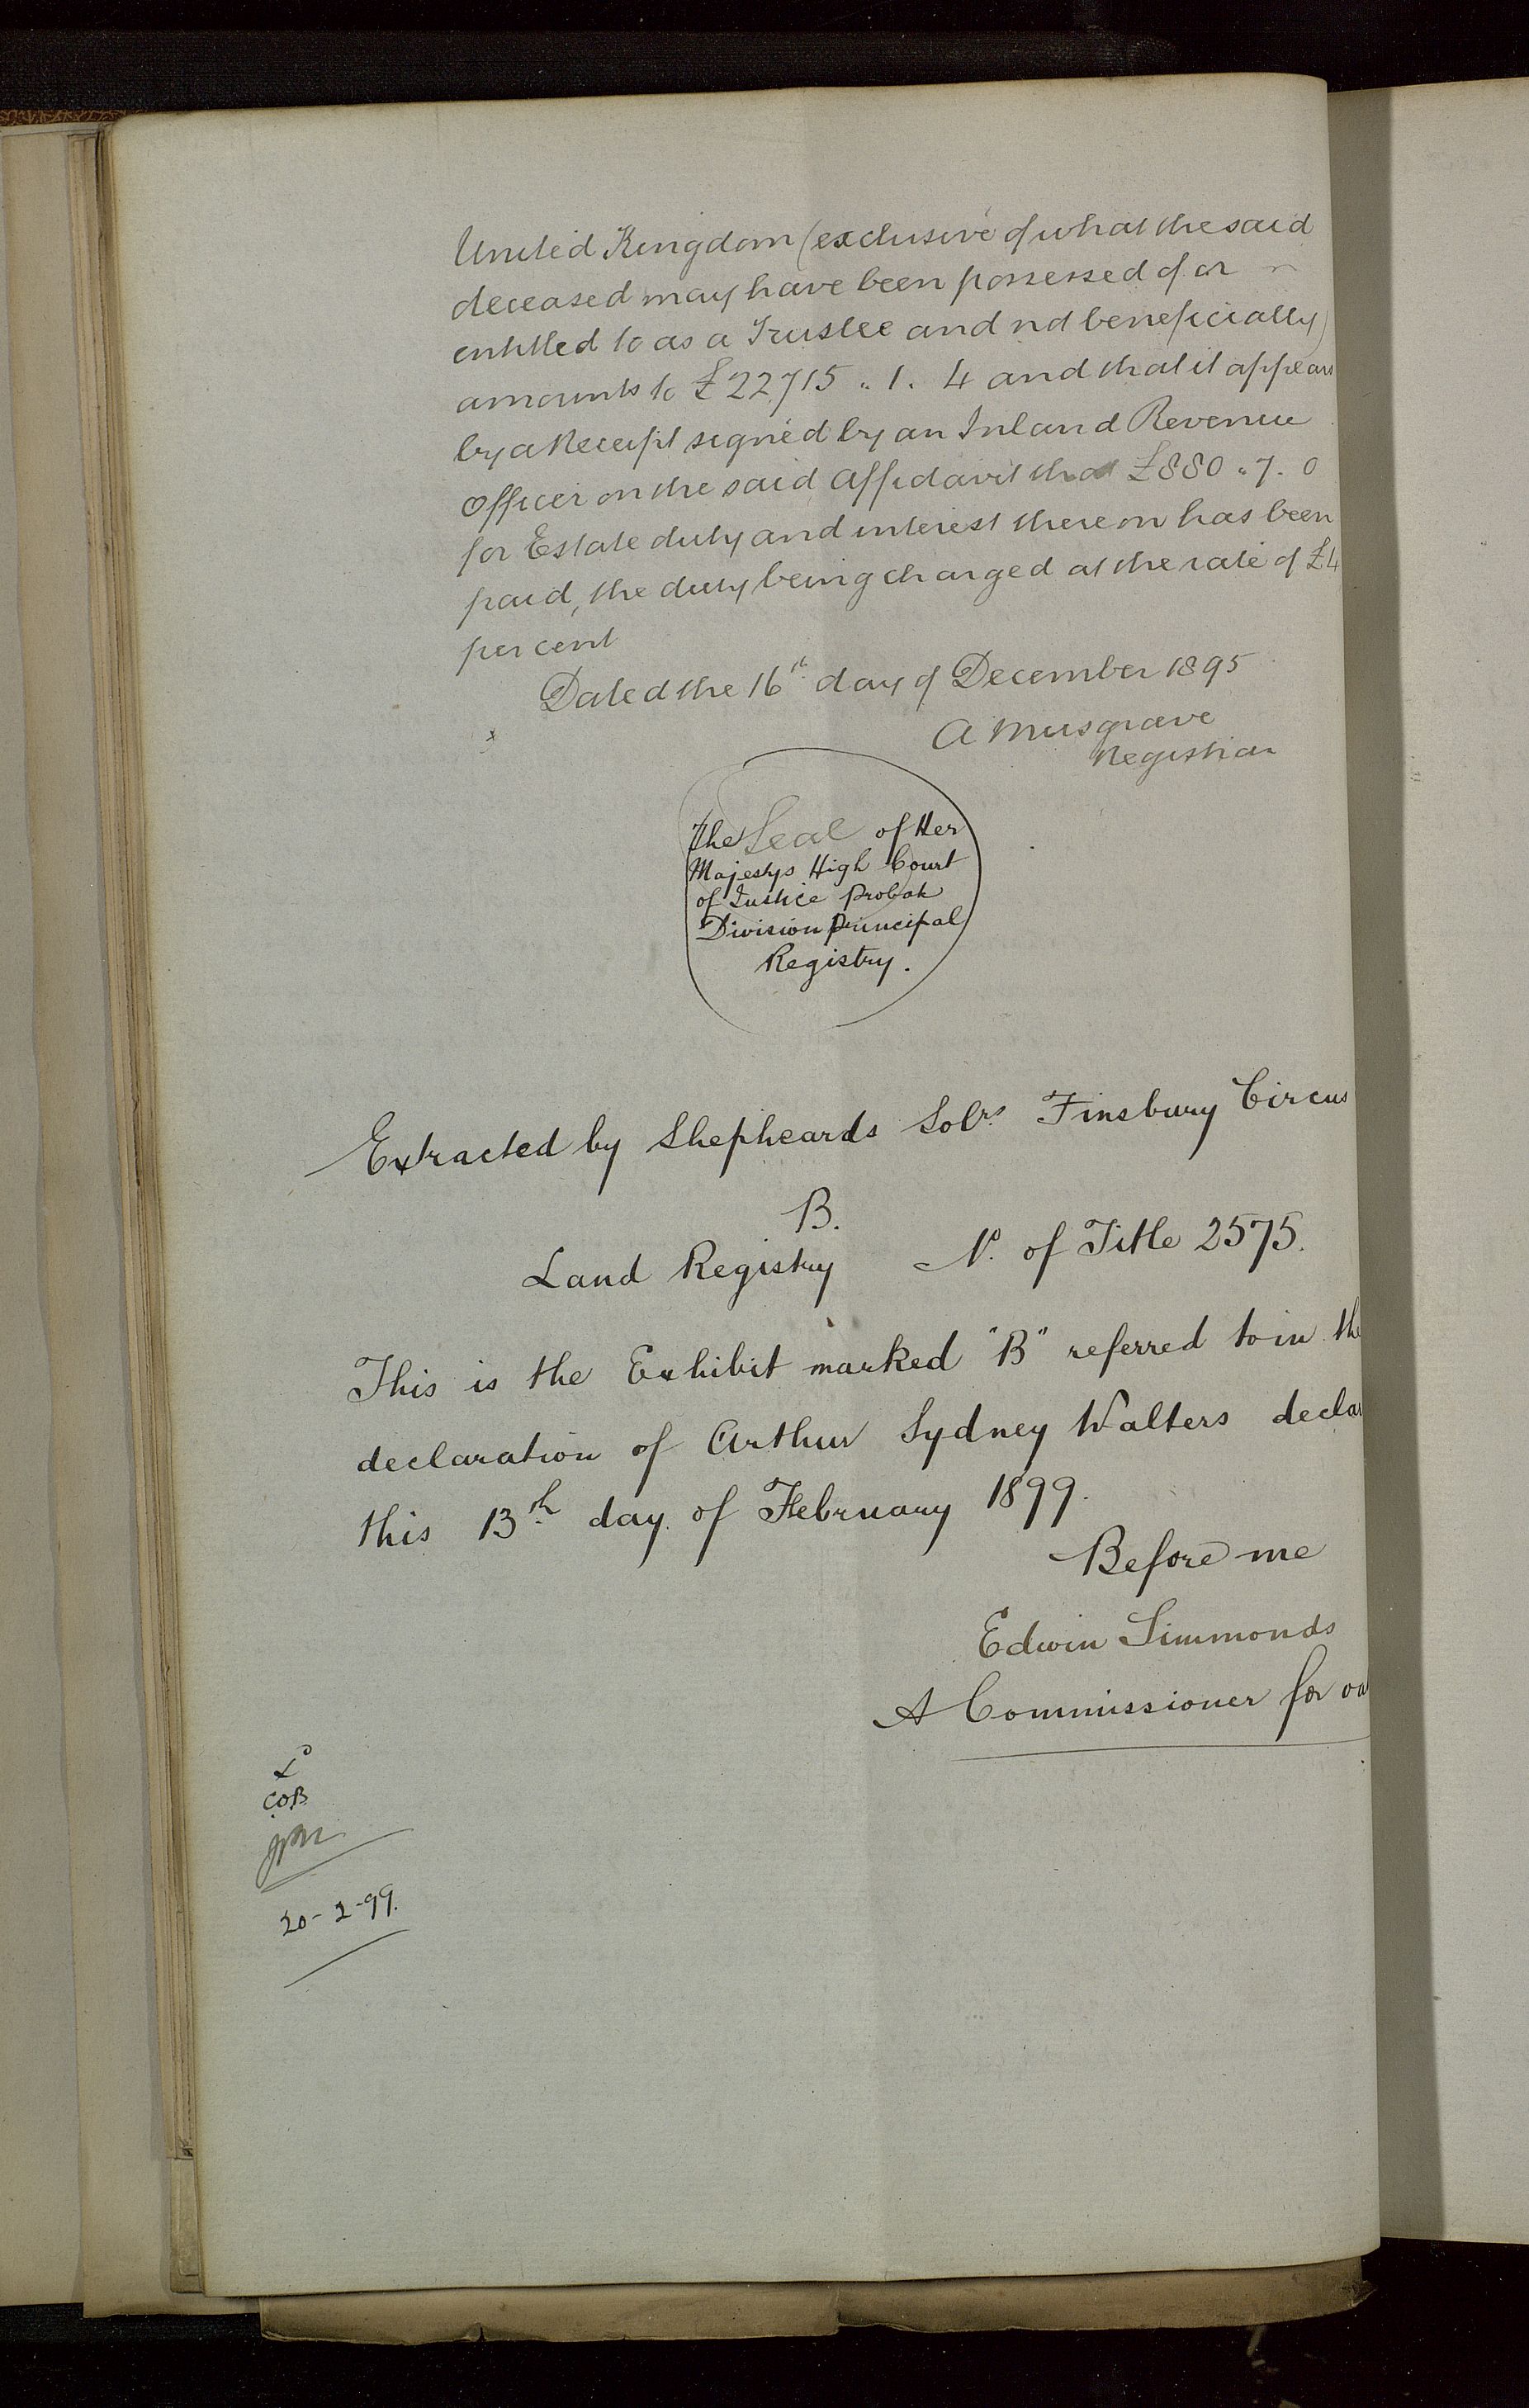 United Kingdom (exclusive of what the said
deceased may have been possessed of or
entitled to as a Trustee and not beneficially)
amounts to £22,715 .. 1 . 4 and that it appears
by a Receipt signed by an Inland Revenue
Officer on the said Affidavit that £880 .. 7 . 0
for Estate duty and interest thereon has been
paid, the duty being charged at the rate of £4
per cent
Dated the 16th day of December 1895
A Musgrave
Registrar
The Seal of Her
Majestys High Court
of Justice Probate
Division Principal
Registry.
Extracted by Shepheards Solrs. Finsbury Circus
B.
Land Registry No. of Title 2575.
This is the Exhibit marked "B" referred to in the
declaration of Arthur Sydney Walters declar
this 13th day of February 1899.
Before me
Edwin Simmonds
A Commissioner for oa
COB
20-2-99.